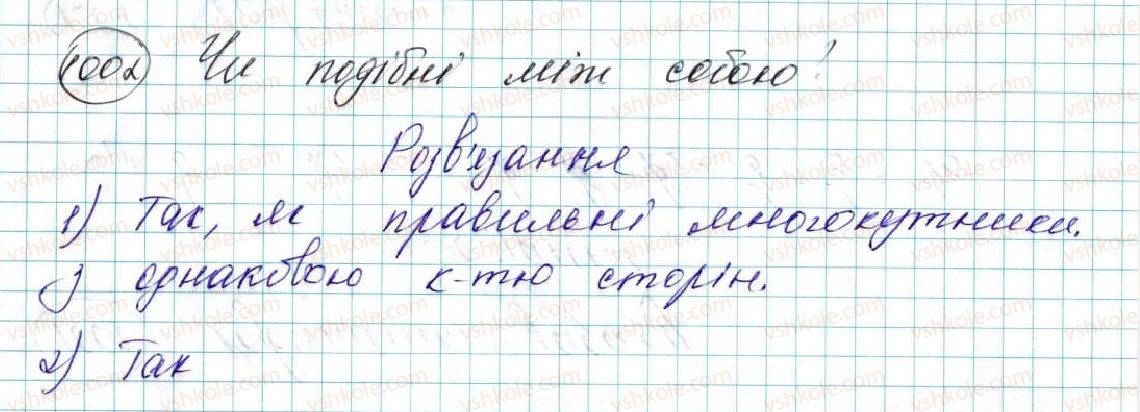 1002 Чи подібні між собою?
Розв'язання
1) Так, як правильні многокутники.
з однаковою к-тю сторін.
2) Так